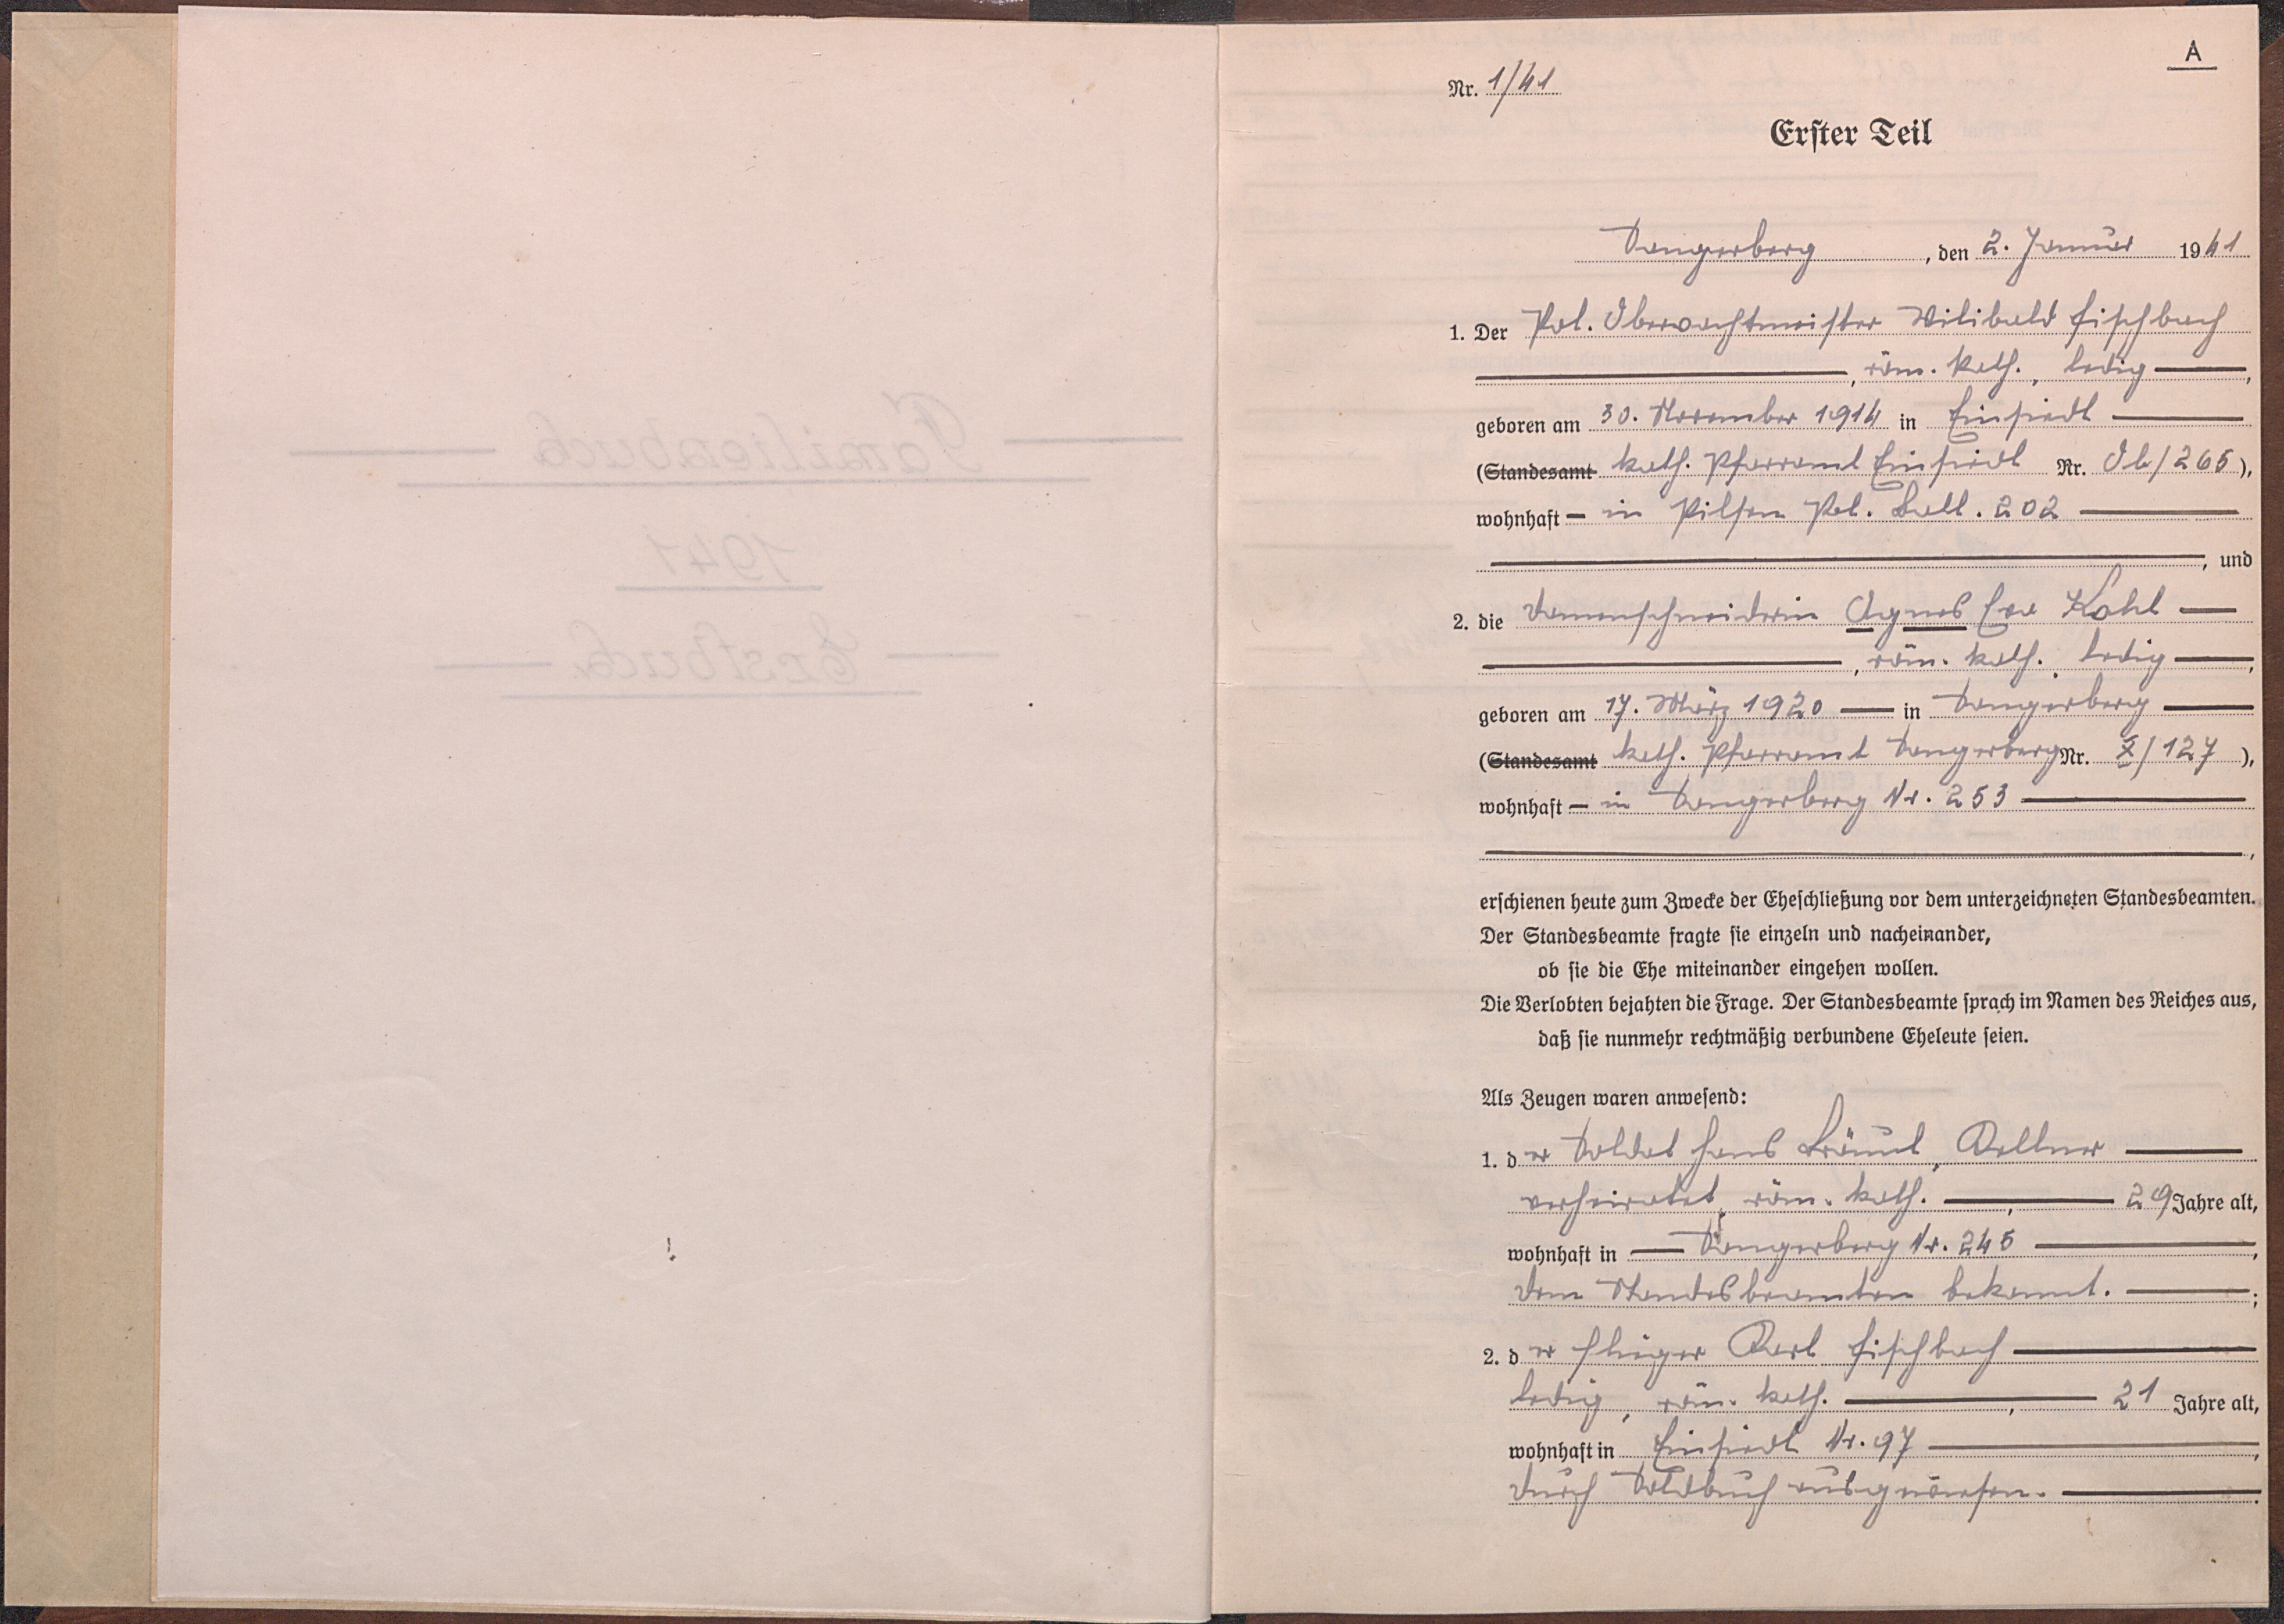 Familienbuch
1941
Erstbuch
A
Nr. 1/41
Erster Teil
Sangerberg, den 2. Januar 1941
1. Der Pol. Oberwachtmeister Wilibald Fischbach
, röm. kath., ledig,
geboren am 30. November 1914 in Einsiedl
(Standesamt kath. Pfarramt Einsiedl Nr. 265),
wohnhaft in Pilsen Pol. Batl. 202
, und
2. die Damenschneiderin Agnes Eva Kohl
, röm. kath. ledig,
geboren am 17. März 1920 in Sangerberg
(Standesamt kath. Pfarramt Sangerberg Nr. X/127),
wohnhaft in Sangerberg Nr. 253
,
erschienen heute zum Zwecke der Eheschließung vor dem unterzeichneten Standesbeamten.
Der Standesbeamte fragte sie einzeln und nacheinander,
ob sie die Ehe miteinander eingehen wollen.
Die Verlobten bejahten die Frage. Der Standesbeamte sprach im Namen des Reiches aus,
daß sie nunmehr rechtmäßig verbundene Eheleute seien.
Als Zeugen waren anwesend:
1. der Soldat Hans Bräunl, Kellner
verheiratet, röm. kath., 29 Jahre alt,
wohnhaft in Sangerberg Nr. 245,
dem Standesbeamten bekannt.;
2. der Flieger Karl Fischbach
ledig, röm. kath., 21 Jahre alt,
wohnhaft in Einsiedl Nr. 97,
durch Soldbuch ausgewiesen.